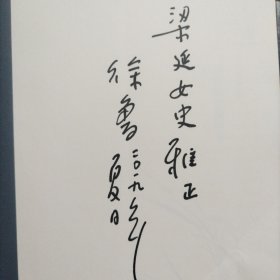 梁延女史 雅正
徐鲁 二〇一九年
夏日